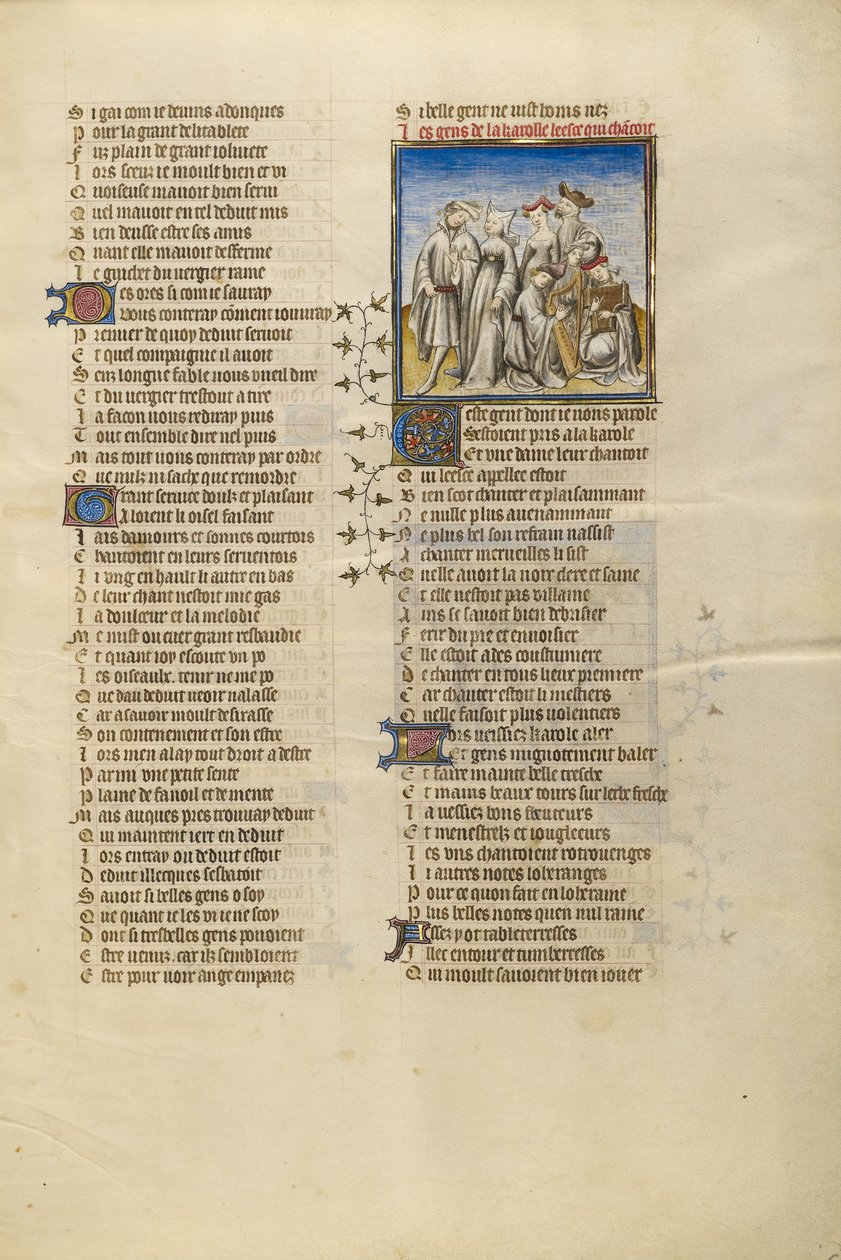 Si gai com ie deuins adonques
Pour la grant delitablete
Fuz plain de grant ioliuete
Lors sceuz ie moult bien et vi
Quoiseuse mauoit bien serui
Quel mauoit en tel deduit mis
Bien deusse estre ses amis
Quant elle mauoit desferme
Le guichet du vergier rame
Des ores si com ie sauray
Vous conteray cōment iouuray
Premier de quoy deduit seruoit
Et quel compaignie il auoit
Senz longue fable uous vueil dire
Et du vergier trestout a tire
La facon uous rediray puis
Tout ensemble dire nel puis
Mais tout uous conteray par ordre
Que nulz ni sache que remordre
Grant seruice doulz et plaisant
Aloient li oisel faisant
Lais damours et sonnes courtois
Chantoient en leurs seruentois
Li vng en hault li autre en bas
De leur chant nestoit mie gas
La doulceur et la melodie
Me mist ou cuer grant resbaudie
Et quant ioy escoute vn po
Les oiseaulx. tenir ne me po
Que dan deduit ueoir nalasse
Car a sauoir moult desirasse
Son contenement et son estre
Lors men alay tout droit a destre
Par mi vne petite sente
Plaine de fanoil et de mente
Mais auques pres trouuay deduit
Qui maintent iert en deduit
Lors entray ou deduit estoit
Deduit illecques sesbatoit
Sauoit si belles gens o soy
Que quant ie les vi ie ne scoy
Dont si tresbelles gens pouoient
Estre uenuz. car ilz sembloient
Estre pour voir ange empanez
Si belle gent ne uist homs nez
Les gens de la karolle leesce qui chātoit
Ceste gent dont ie uous parole
Sestoient pris a la karole
Et vne dame leur chantoit
Qui leesce appellee estoit
Bien scot chanter et plaisammant
Ne nulle plus auenammant
Ne plus bel son refrain nassist
A chanter merueilles li sist
Quelle auoit la uoix clere et saine
Et elle nestoit pas villaine
Ains se sauoit bien debrisier
Ferir du pie et enuoisier
Elle estoit ades coustumiere
De chanter en tous lieux premiere
Car chanter estoit li mestiers
Quelle faisoit plus uolentiers
Lors veissiez karole aler
Et gens mignotement baler
Et faire mainte belle tresche
Et mains beaux tours sur lerbe fresche
La veissiez bons fleuteurs
Et menestrelz et iougleeurs
Les vns chantoient rotrouenges
Li autres notes loheranges
Pour ce quon fait en loheraine
Plus belles notes quen nul raine
Assez y ot tableterresses
Illec entour et tumberresses
Qui moult sauoient bien iouer